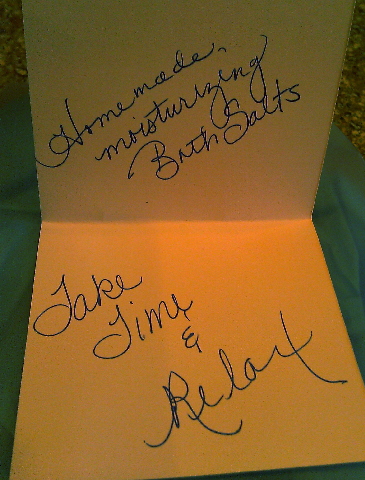 Homemade,
moisturizing
Bath Salts
Take
Time
&
Relax